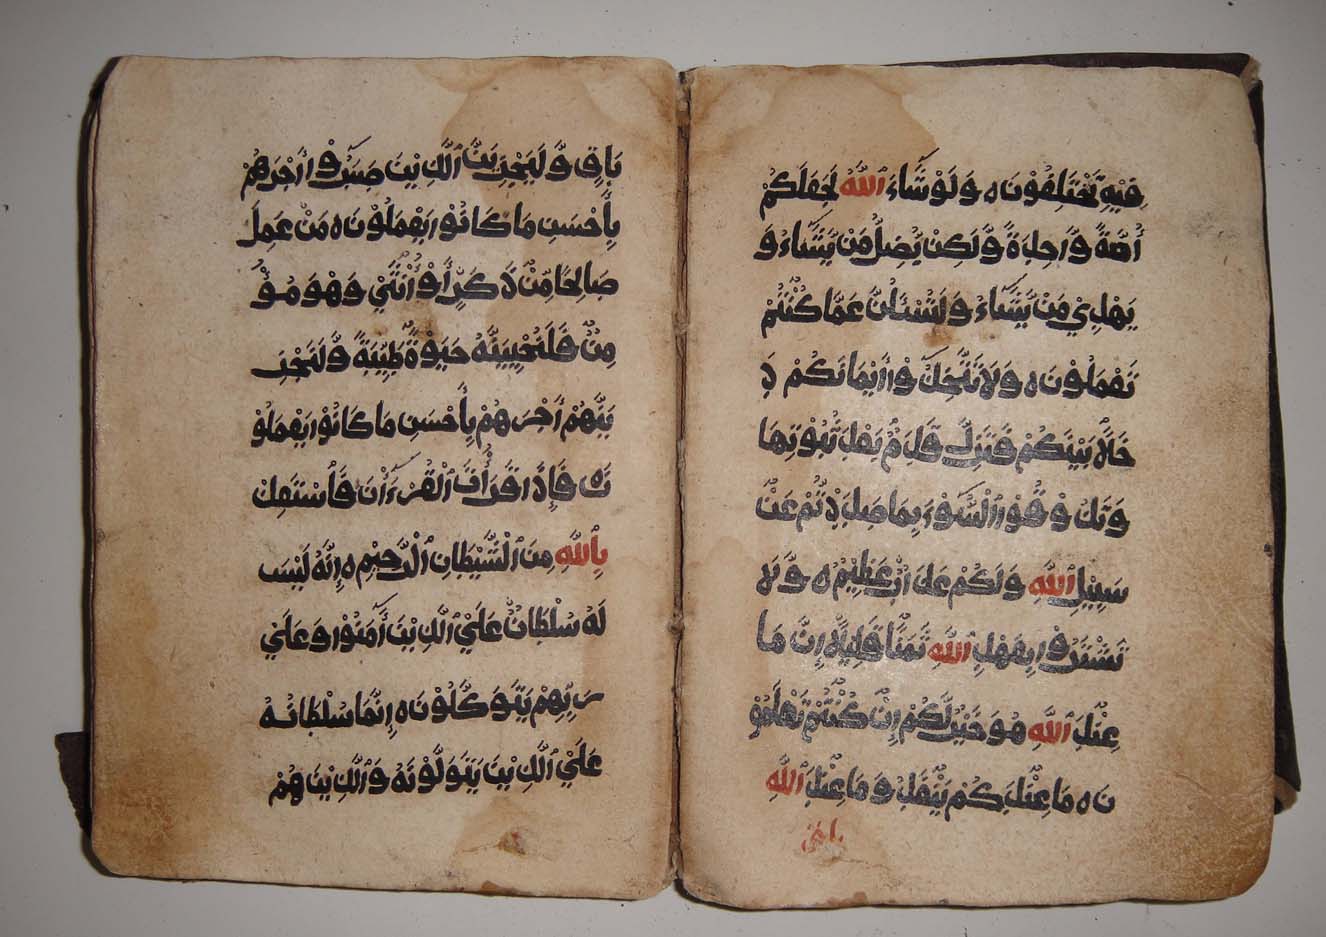 فِيهِ تَخْتَلِفُوْنَ ه وَلَوْ شَآءَ ٱللَّهُ لَجَعَلَكُمْ
أُمَّةً وَّاحِدَةً وَّلَكِنْ يُّضِلُّ مَنْ يَّشَآءُ وَ
يَهْدِيْ مَنْ يَّشَآءُ وَلَتُسْئَلُنَّ عَمَّا كُنْتُمْ
تَعْمَلُوْنَ ه وَلَا تَتَّخِذُوْٓا أَيْمَانَكُمْ دَ
خَلًا بَيْنَكُمْ فَتَزِلَّ قَدَمٌ بَعْدَ ثُبُوْتِهَا
وَتَذُوْقُوْا ٱلْسُّوْٓءَ بِمَا صَدَدْتُّمْ عَنْ
سَبِيْلِ ٱللَّهِ وَلَكُمْ عَذَابٌ عَظِيْمٌ ه وَلَا
تَشْتَرُوْا بِعَهْدِ ٱللَّهِ ثَمَنًا قَلِيْلًا إِنَّ مَا
عِنْدَ ٱللَّهِ هُوَ خَيْرٌ لَّكُمْ إِنْ كُنْتُمْ تَعْلَمُوْ
نَ ه مَا عِنْدَكُمْ يَنْفَدُ وَمَا عِنْدَ ٱللَّهِ
باق
بَاقٍ وَّلَيَجْزِيَنَّ ٱلَّذِيْنَ صَبَرُوْٓا أَجْرَهُمْ
بِأَحْسَنِ مَا كَانُوْا يَعْمَلُوْنَ ه مَنْ عَمِلَ
صَالِحًا مِّنْ ذَكَرٍ أَوْ أُنْثَيْ وَهُوَ مُؤْ
مِنٌ فَلَنُحْيِيَنَّهُ حَيَوٰةً طَيِّبَةً وَّلَنَجْزِ
يَنَّهُمْ أَجْرَهُمْ بِأَحْسَنِ مَا كَانُوْا يَعْمَلُوْ
نَ ه فَإِذَا قَرَأْتَ ٱلْقُرْءَآنَ فَٱسْتَعِذْ
بِٱللَّهِ مِنَ ٱلْشَّيْطَانِ ٱلْرَّجِيْمِ ه إِنَّهُ لَيْسَ
لَهُ سُلْطَانٌ عَلَيْ ٱلَّذِيْنَ ءَامَنُوْا وَعَلَيْ
رَبِّهِمْ يَتَوَكَّلُوْنَ ه إِنَّمَا سُلْطَانُهُ
عَلَيْ ٱلَّذِيْنَ يَتَوَلَّوْنَهُ وَٱلَّذِيْنَ هُمْ